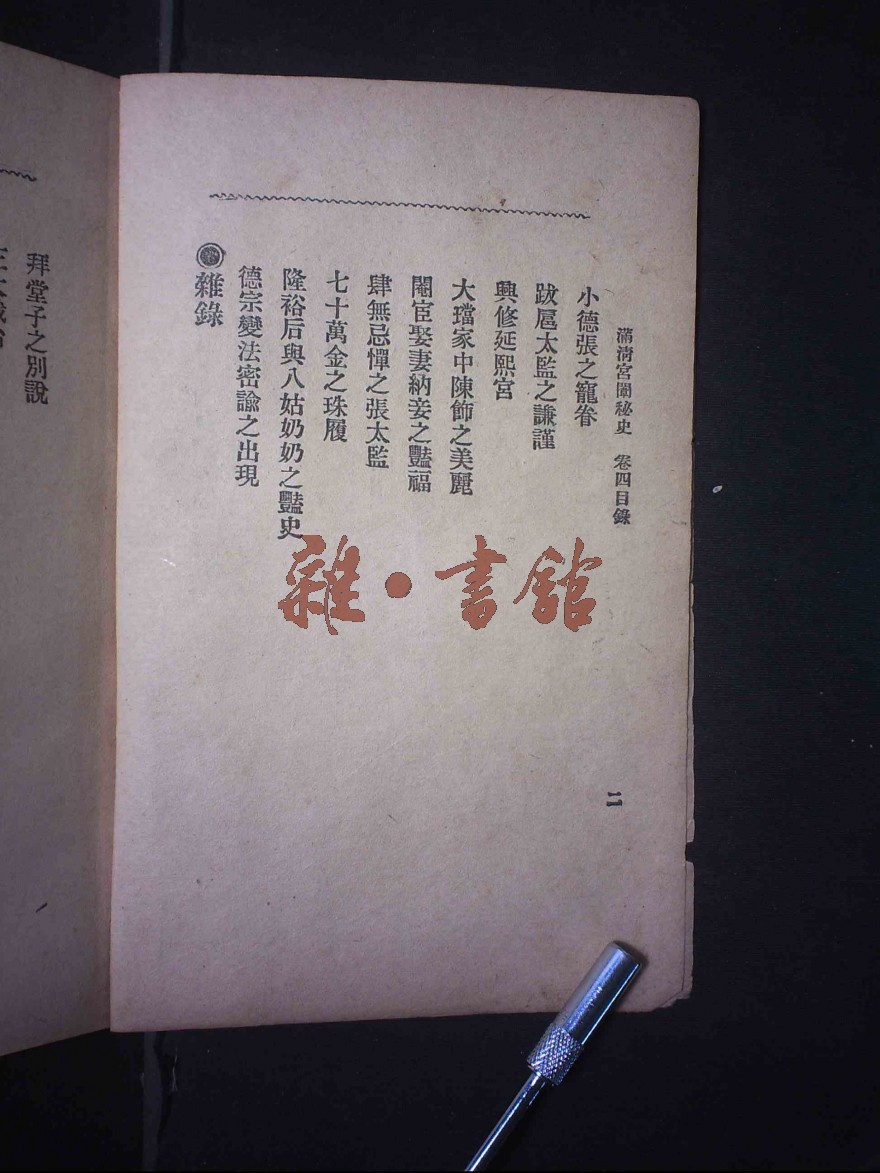 滿清宮闈祕史　卷四目錄
二
小德張之寵眷
跋扈太監之謙謹
興修延熙宮
大璫家中陳飾之美麗
閹宦娶妻納妾之豔福
肆無忌憚之張太監
七十萬金之珠履
隆裕后與八姑奶奶之豔史
德宗變法密諭之出現
◉雜錄
拜堂子之別說
雜·書館